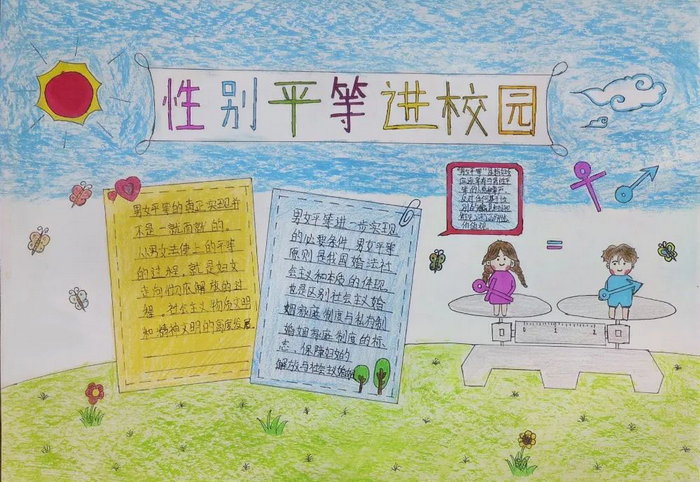 性别平等进校园
男女平等的真正实现并
不是一蹴而就的。
从男女法律上的平等
的过程，就是妇女
走向彻底解放的过
程，社会主义物质文明
和精神文明的高度发展
男女平等进一步实现
的必要条件，男女平等
原则是我国婚法社
会主义和本质的体现，
也是区别社会主义婚
姻家庭制度与私有制
婚姻家庭制度的标
志、保障妇女的
解放与社会主义婚姻
"男女平等"
=